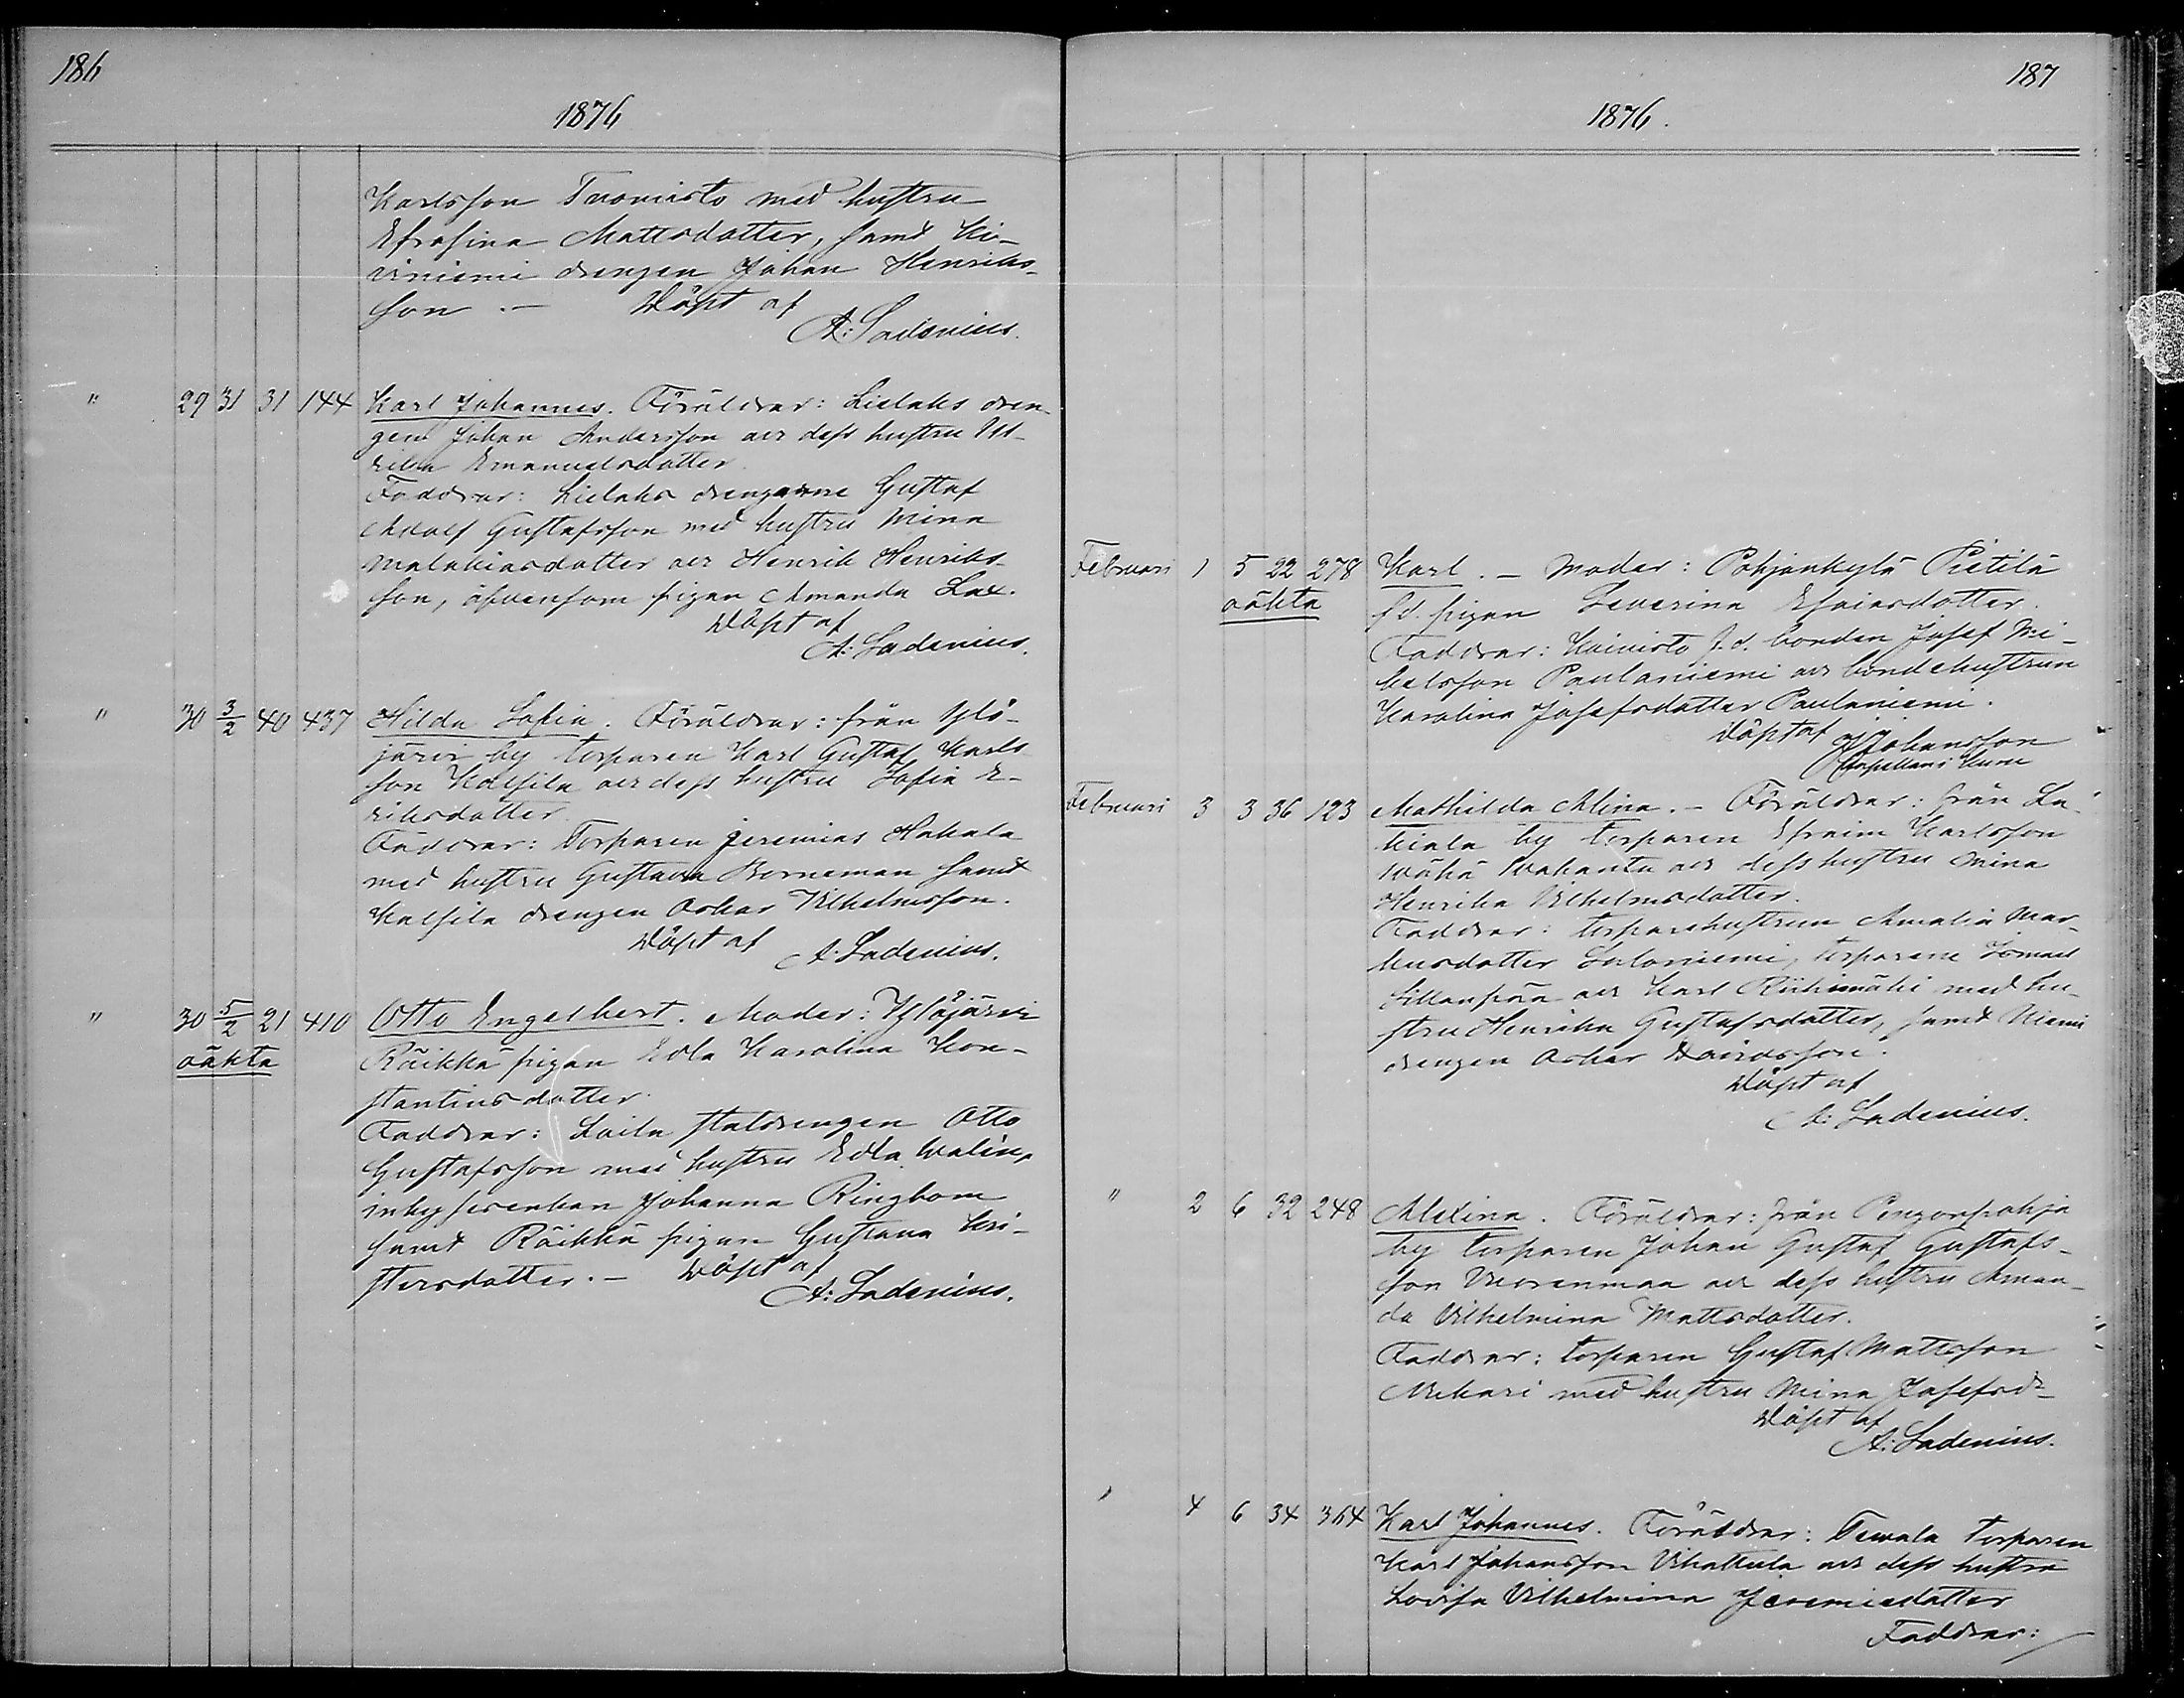 186
1876
Karlsson Tuomisto med hustru
Efrosina Mattsdotter, samt Ki-
viniemi drengen Johan Henriks-
son. – Döpt af
A: Ladenius.
" 29 31 31 144 Karl Johannes. Föräldrar: Lielaks dren-
gen Johan Andersson och dess hustru Ul-
rika Emanuelsdotter
Faddrar: Lielaks drengarne Gustaf
Adolf Gustafsson med hustru Mina
Malakiasdotter och Henrik Henriks-
son, äfvensom pigan Amanda Lax.
Döpt af
A: Ladenius.
" 30 3/2 40 437 Hilda Sofia. Föräldrar: från Ylö-
järvi by torparen Karl Gustaf Karls-
son Kalsila och dess hustru Sofia E-
riksdotter
Faddrar: Torparen Jeremias Hakala
med hustru Gustava Borneman samt
Kalsila drengen Oskar Vilhelmsson.
Döpt af A: Ladenius.
" 30 5/2 21 410 Otto Engelbert. Moder: Ylöjärvi
oäkta Räikkä pigan Edla Karolina Kon-
stantinsdotter.
Faddrar: Laila staldrengen Otto
Gustafsson med hustru Edla Walin,
inhyseenkan Johanna Ringbom
samt Räikkä pigan Gustava Kri-
stersdotter. – Döpt af
A: Ladenius.
187
1876.
Februari 1 5 22 278 Karl. – Moder: Pohjankylä Pietilä
oäkta f.d. pigan Severina Esaiasdotter.
Faddrar: Koivisto f.d. bonden Josef Mi-
kelsson Paulaniemi och bondehustrun
Karolina Josefsdotter Paulaniemi.
Döpt af Johansson
Kapellans
Februari 3 3 36 123 Mathilda Alina. – Föräldrar: från La-
kiala by torparen Efraim Karlsson
Wähä Wahanta och dess hustru Mina
Henrika Vilhelmsdotter.
Faddrar: torparehustrun Amalia Mar-
kusdotter Saloniemi, torparene Tomas
Sillanpää och Karl Riihimäki med hu-
stru Henrika Gustafsdotter, samt Niemi
drengen Oskar Davidsson.
Döpt af
A: Ladenius.
" 2 6 32 248 Alexina. Föräldrar: från Pengonpohja
by torparen Johan Gustaf Gustafs-
son Vuorenmaa och dess hustru Aman-
da Vilhelmina Mattsdotter.
Faddrar: torparen Gustaf Mattsson
med hustru Mina Josefsdr
Döpt af
A: Ladenius.
" 4 6 34 364 Karl Johannes. Föräldrar: Tewala torparen
Karl Johansson Vihattula och dess hustru
Lovisa Vilhelmina Jeremiedotter
Faddrar: